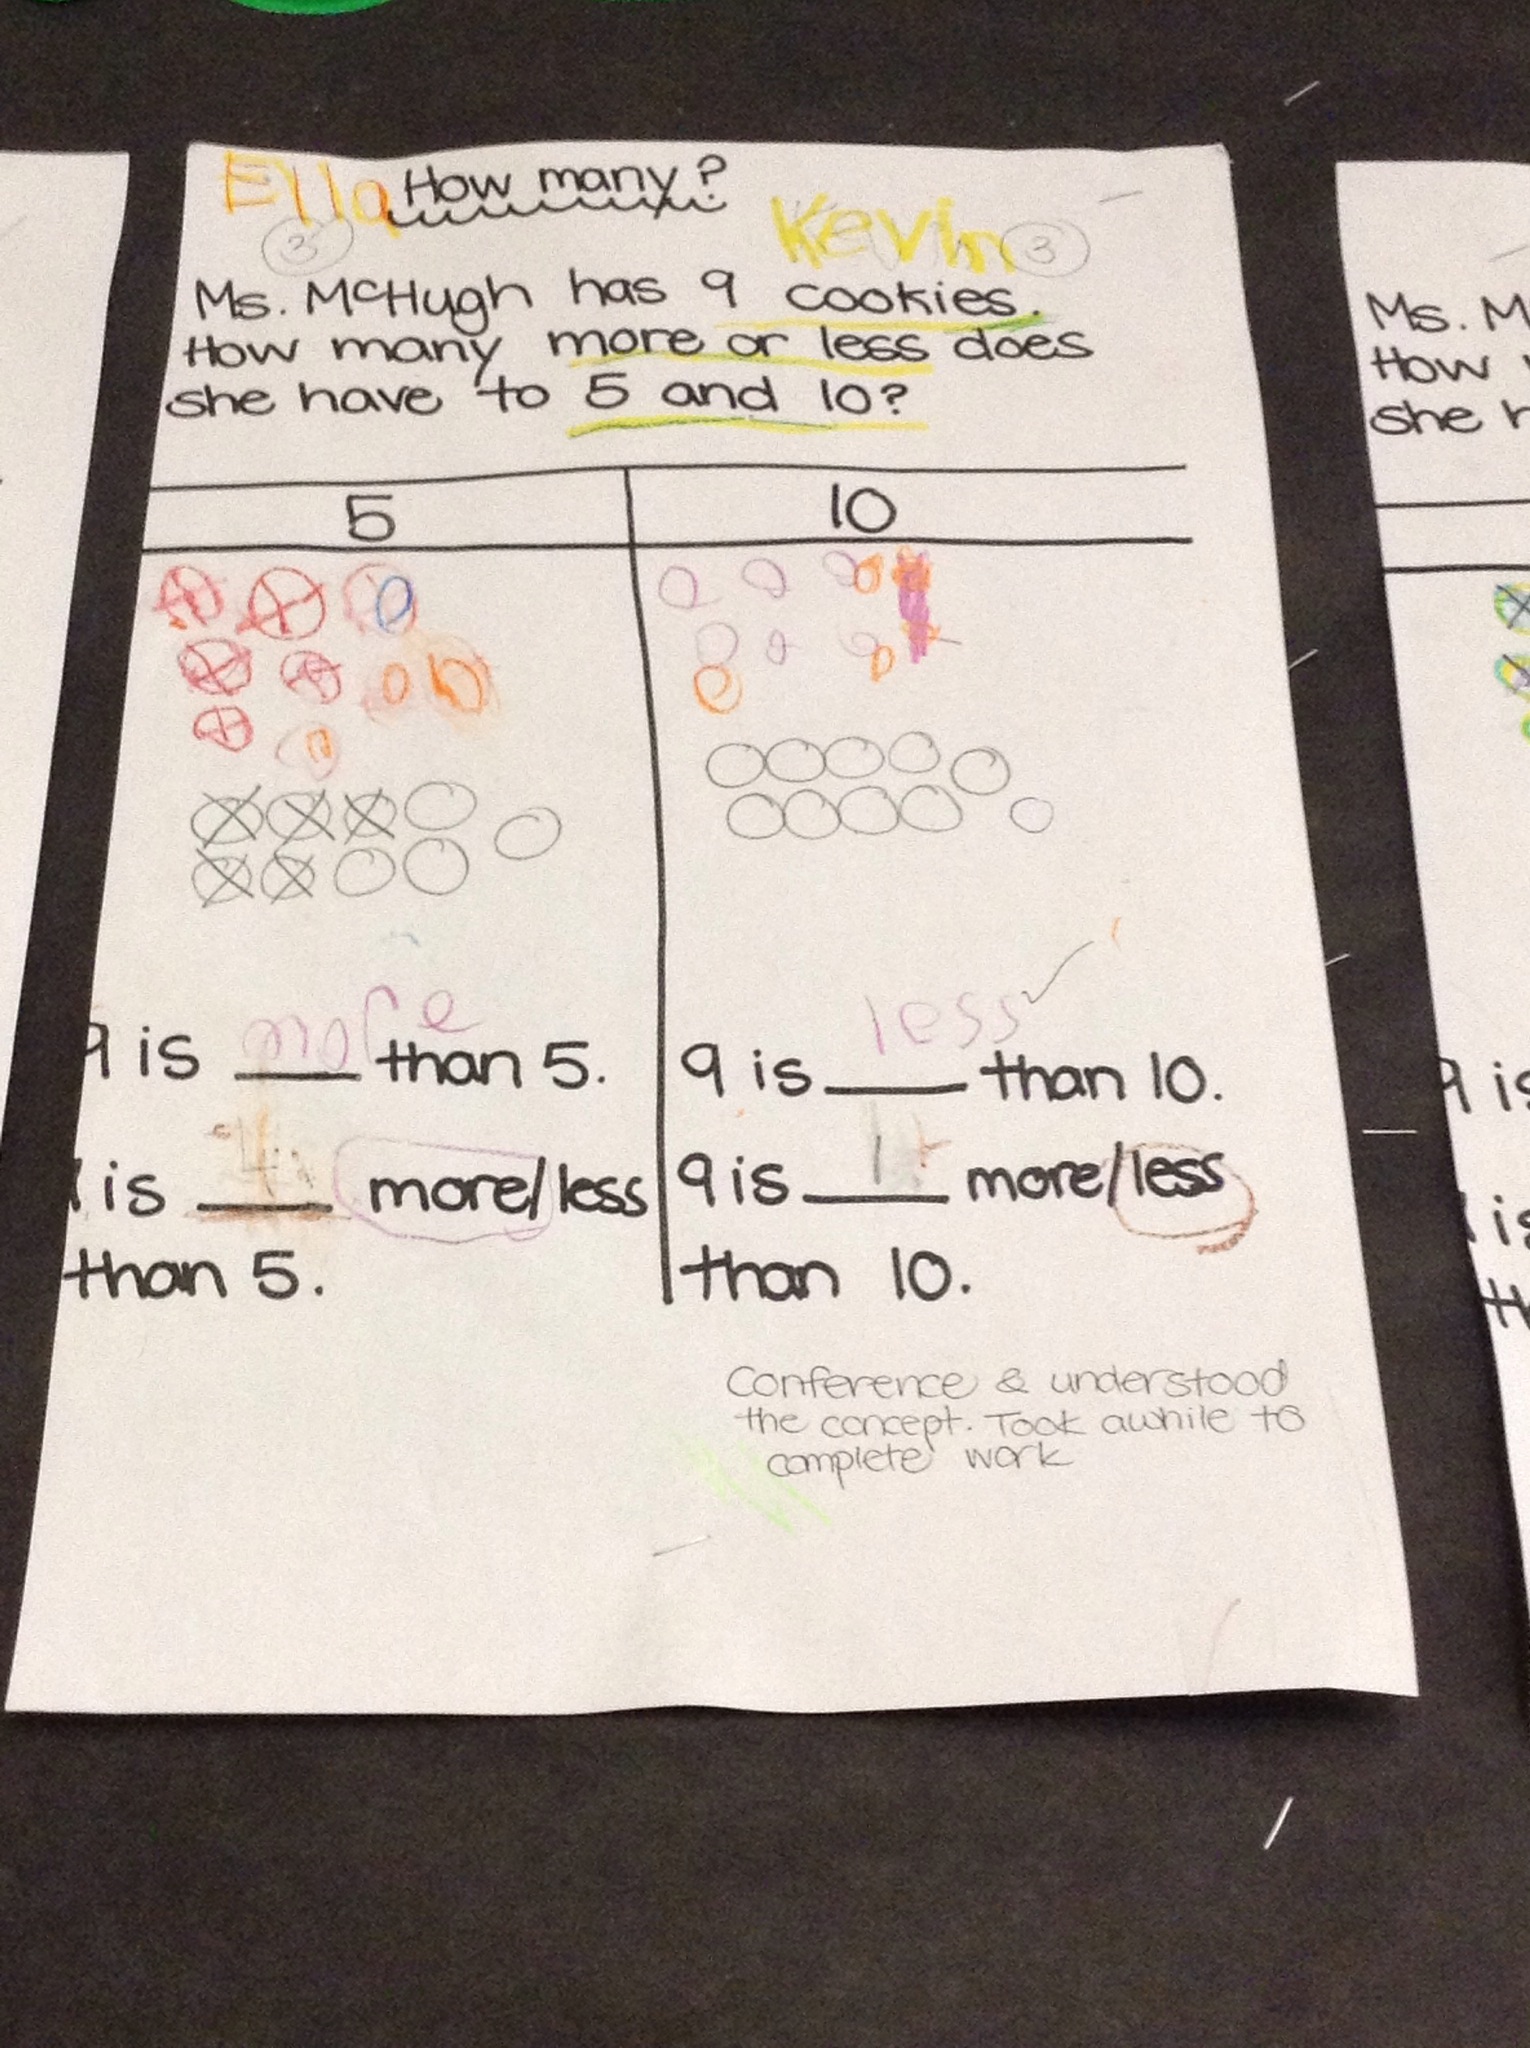 Ella How many?
3 Kevin 3
Ms. McHugh has 9 cookies.
How many more or less does
she have to 5 and 10?
5
10
9 is more than 5.
is 4 more/less
than 5.
9 is less than 10.
9 is 1 more/less
than 10.
Conference & understood
the concept. Took awhile to
complete work
Ms. M
How
she
9 is
is